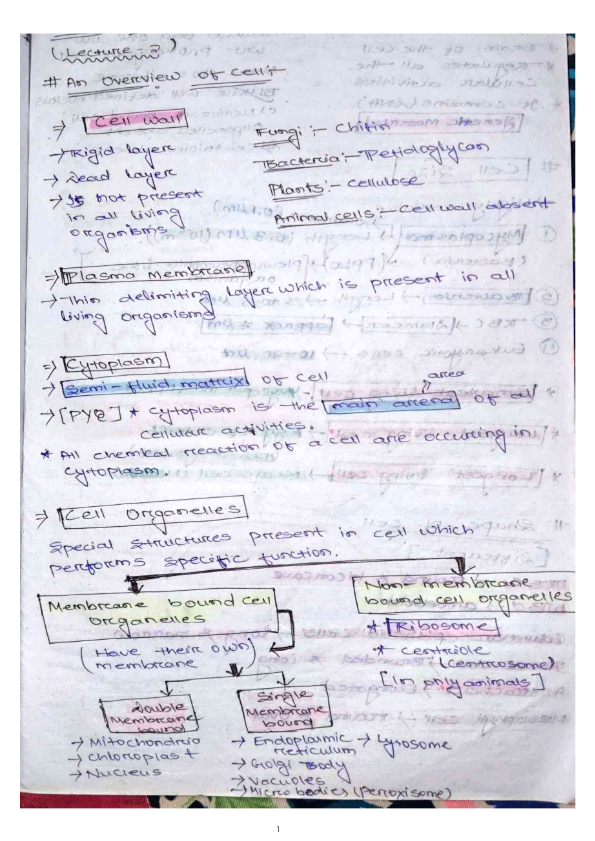 (Lecture - 2)
# An Overview of cell :-
⇒ Cell wall
→ Rigid layer
→ Dead layer
→ Is not present
in all living
organisms
Fungi :- Chitin
Bacteria :- Petidoglycan
Plants :- Cellulose
Animal cells :- Cell wall absent
⇒ Plasma Membrane
→ Thin delimiting layer which is present in all
living organisms
⇒ Cytoplasm
→ Semi-fluid matrix of cell
area
→ [PYQ] * Cytoplasm is the main arena of all
cellular activities.
* All chemical reaction of a cell are occuring in
cytoplasm.
⇒ Cell Organelles
Special structures present in cell which
performs specific function.
Membrane bound cell
organelles
(Have their own
membrane)
Non-membrane
bound cell organelles
* Ribosome
* Centriole
(centrosome)
[In only animals]
Double
Membrane
bound
→ Mitochondria
→ Chloroplast
→ Nucleus
Single
Membrane
bound
→ Endoplasmic
reticulum
→ Lysosome
→ Golgi Body
→ Vacuoles
→ Micro bodies (Peroxisome)
1